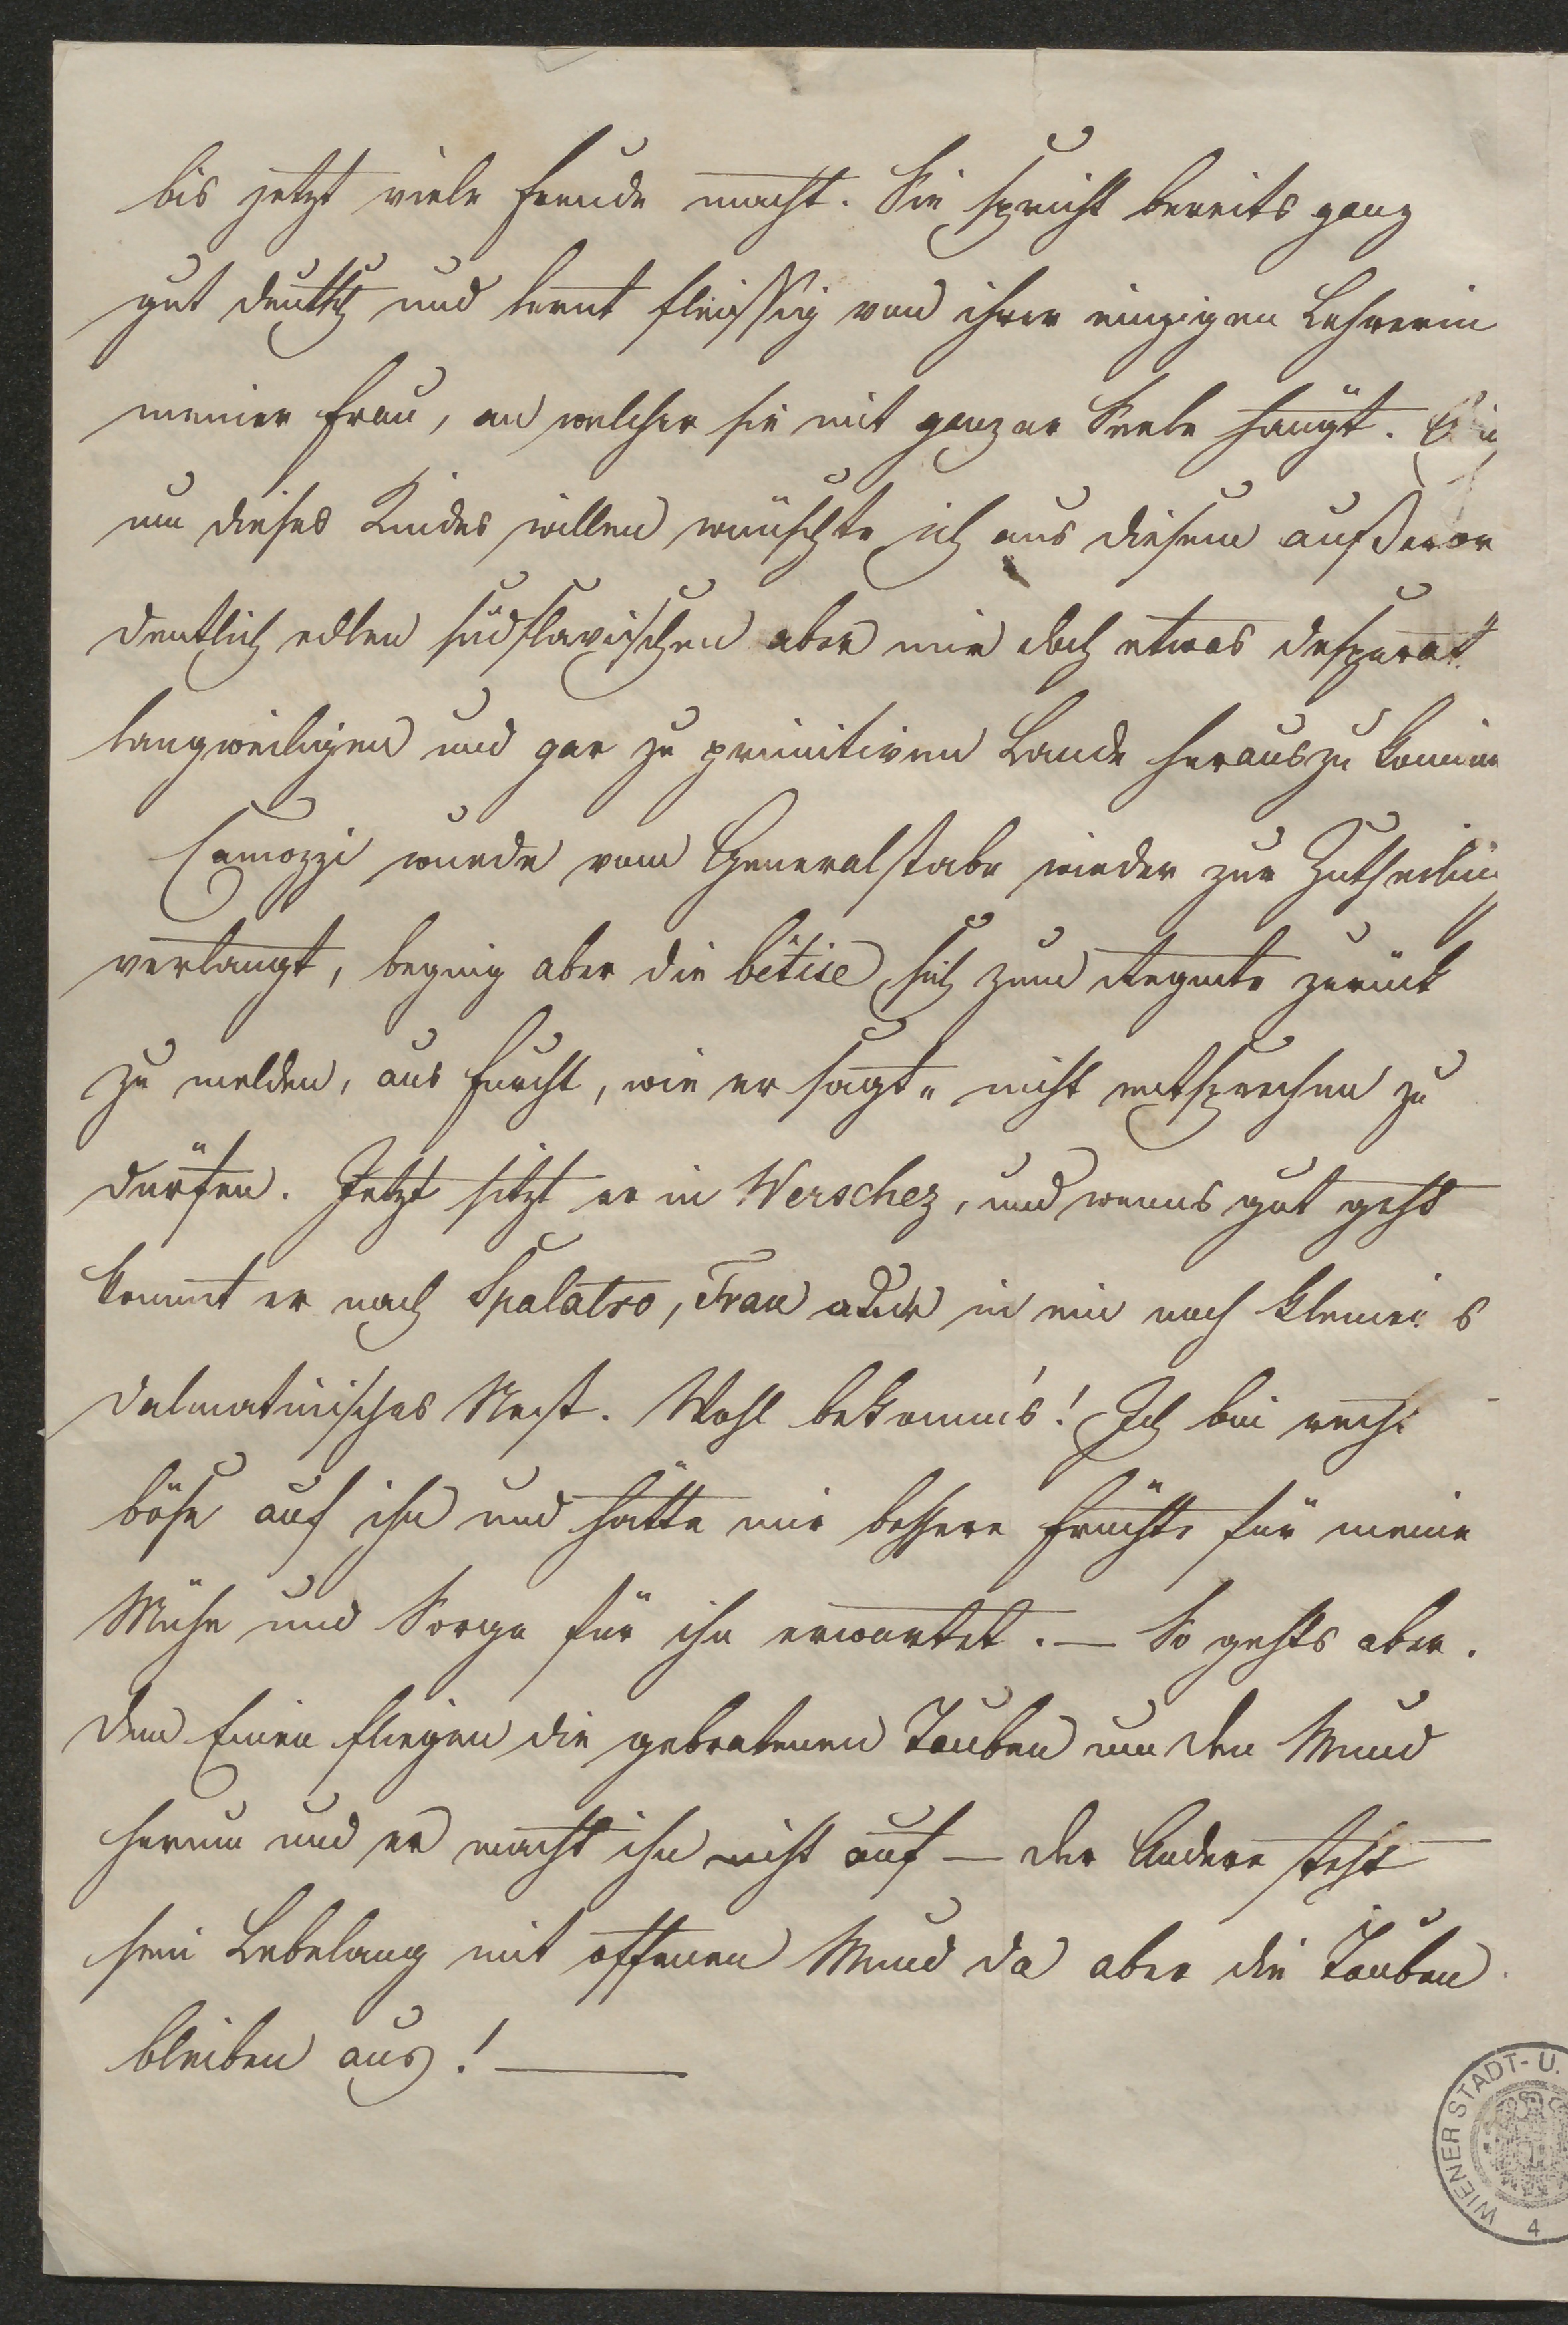 bis jetzt viele Freude macht. Sie spricht bereits ganz
gut deutsch und lernt fleissig von ihrer einzigen Lehrerin
meiner Frau, an welcher sie mit ganzer Seele hängt.
um dieses Kindes willen wünschte ich aus diesem außeror
dentlich edlen südslavischen aber mir doch etwas desperat
langweiligen und gar zu primitiven Lande herauszukommen
Camozzi wurde vom Generalstabe wieder zur Zutheilung
verlangt, beging aber die bêtise sich zum Regmte zurück
zu melden, aus Furcht, wie er sagt „ nicht entsprechen zu
dürfen. Jetzt sitzt er in Werschez, und wenns gut geht
kommt er nach Spalatro, Trau oder in ein noch kleineres
dalmatinisches Nest. Wohl bekomm's! Ich bin recht
böse auf ihn und hätte mir bessere Früchte für meine
Mühe und Sorge für ihn erwartet. — So gehts aber.
Dem Einen fliegen die gebratenen Tauben um den Mund
herum und er macht ihn nicht auf — der Andere steht
sein Lebelang mit offenen Mund da aber die Tauben
bleiben aus! —
WIENER STADT- U.
4